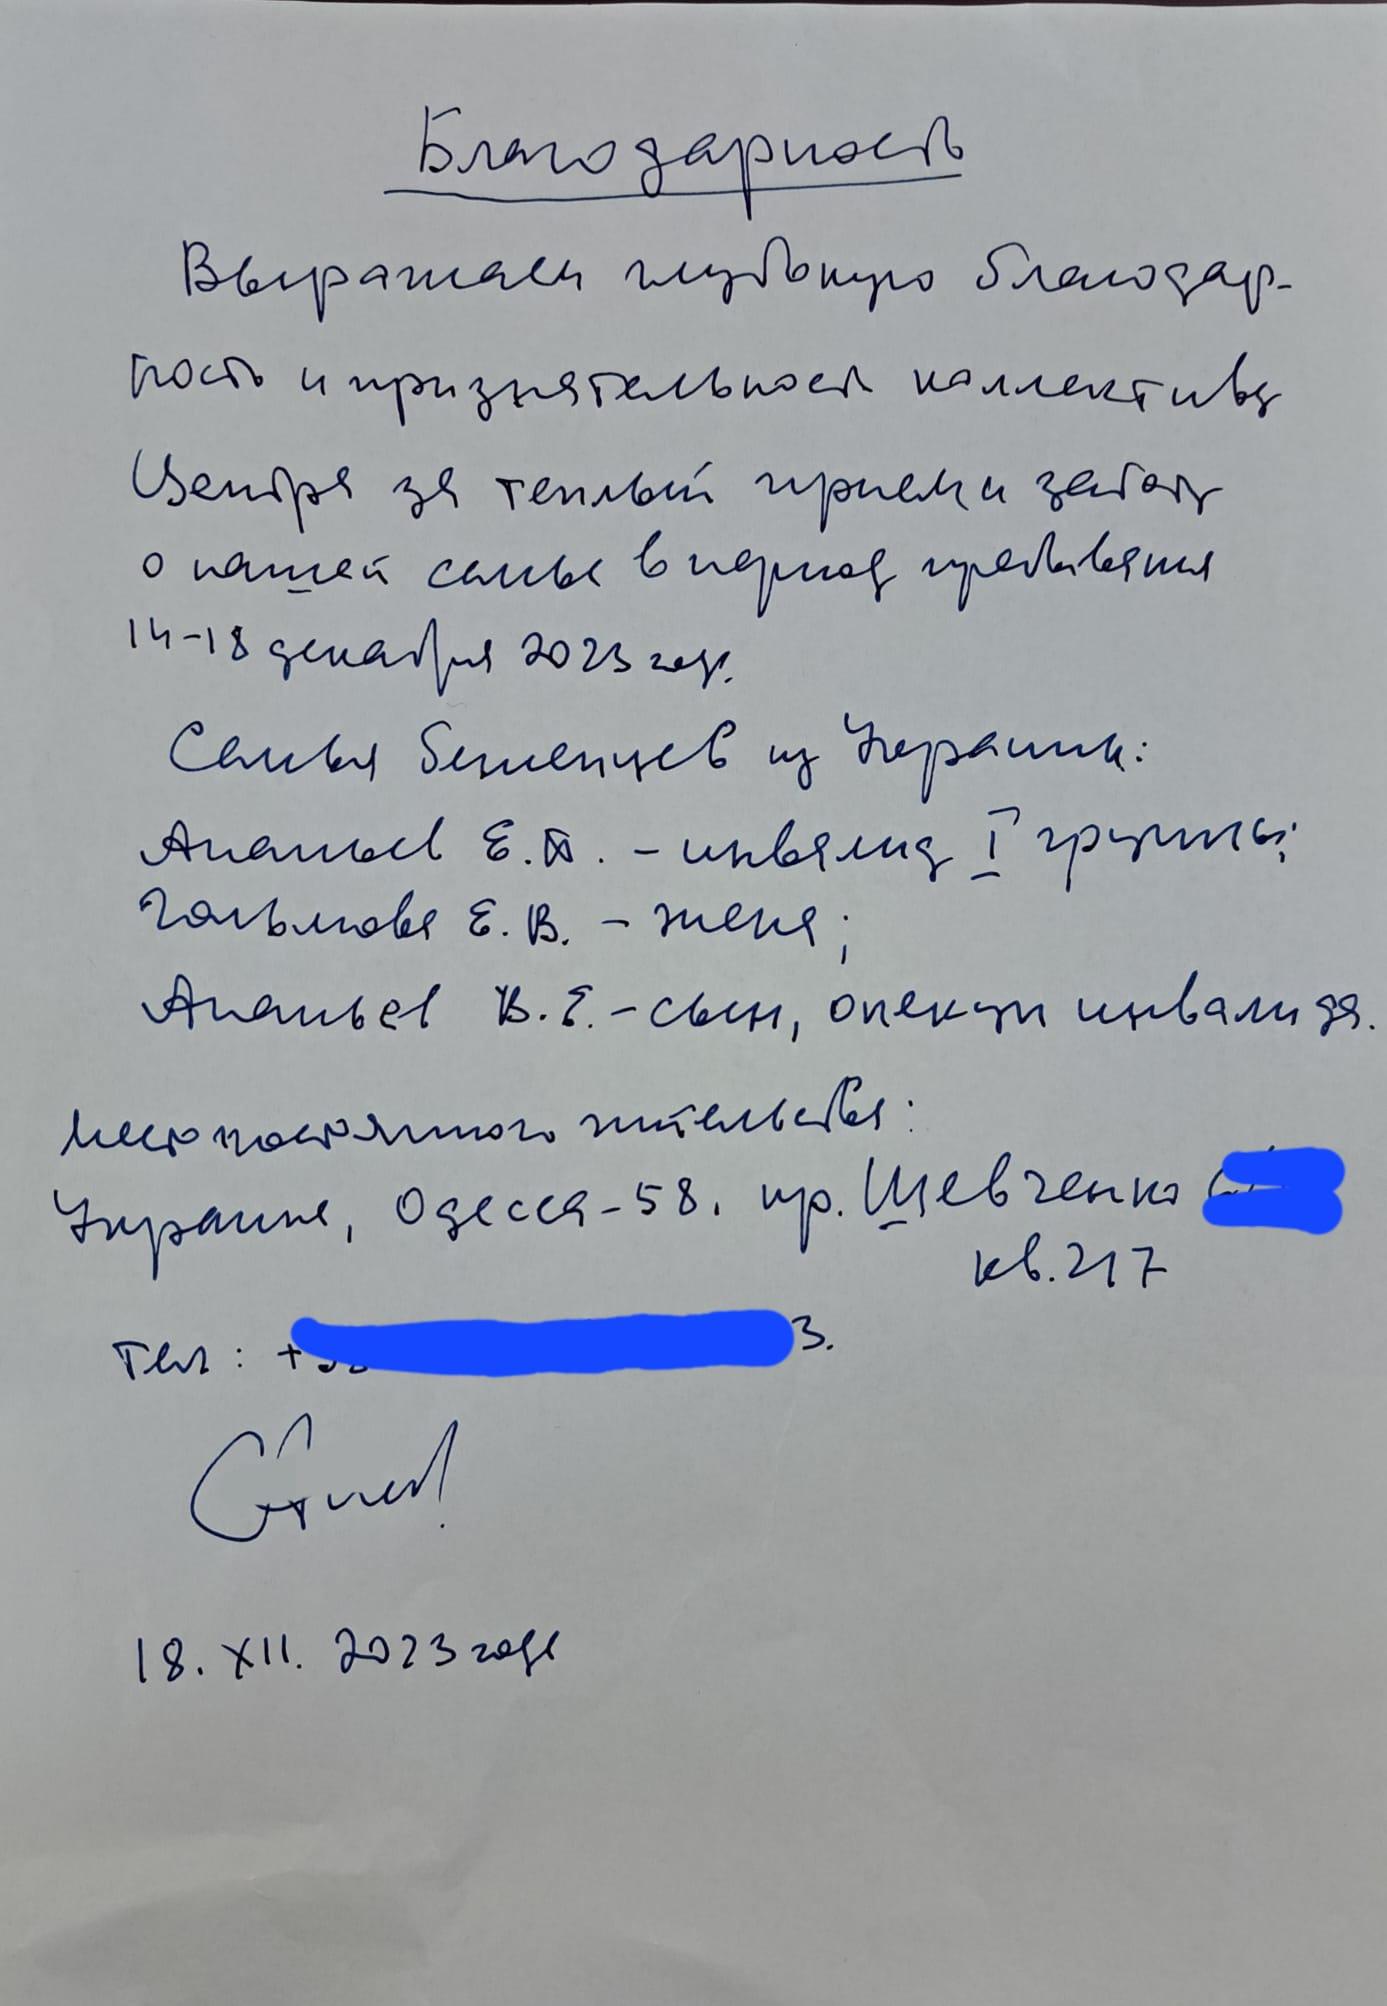 Благодарность
Выражаем глубокую благодар-
ность и признательность коллективу
Центра за теплый прием и заботу
о нашей семье в период пребывания
14-18 декабря 2023 года.
Семья беженцев из Украины:
Ананьев Е. . - инвалид I группы;
Е.В. - жена;
Ананьев В.Е. - сын, опекун инвалида.
Место постоянного жительства:
Украина, Одесса-58. пр. Шевченко
кв. 217
Тел: + 3.
18. XII. 2023 года